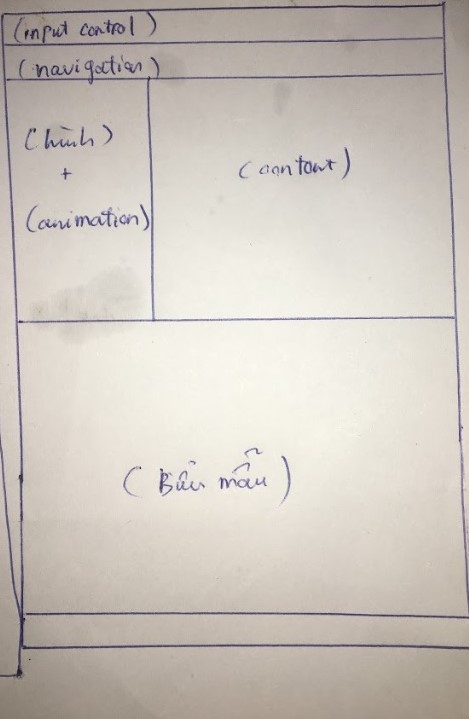 (input control)
(navigation)
(hình)
+
(animation)
(contant)
(Bản mẫu)